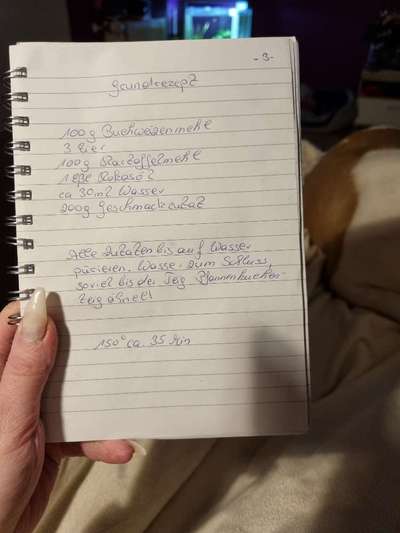 -3-
Grundrezept
100g Buchweizenmehl
3 Eier
100g Kartoffelmehl
1 EßL Kokosöl
ca 30ml Wasser
200g Geschmackzutat
Alle Zutaten bis auf Wasser
pürieren. Wasser zum Schluss,
soviel bis der Teig Pfannenkuchen
teig ähnelt!
150° ca. 35 Min